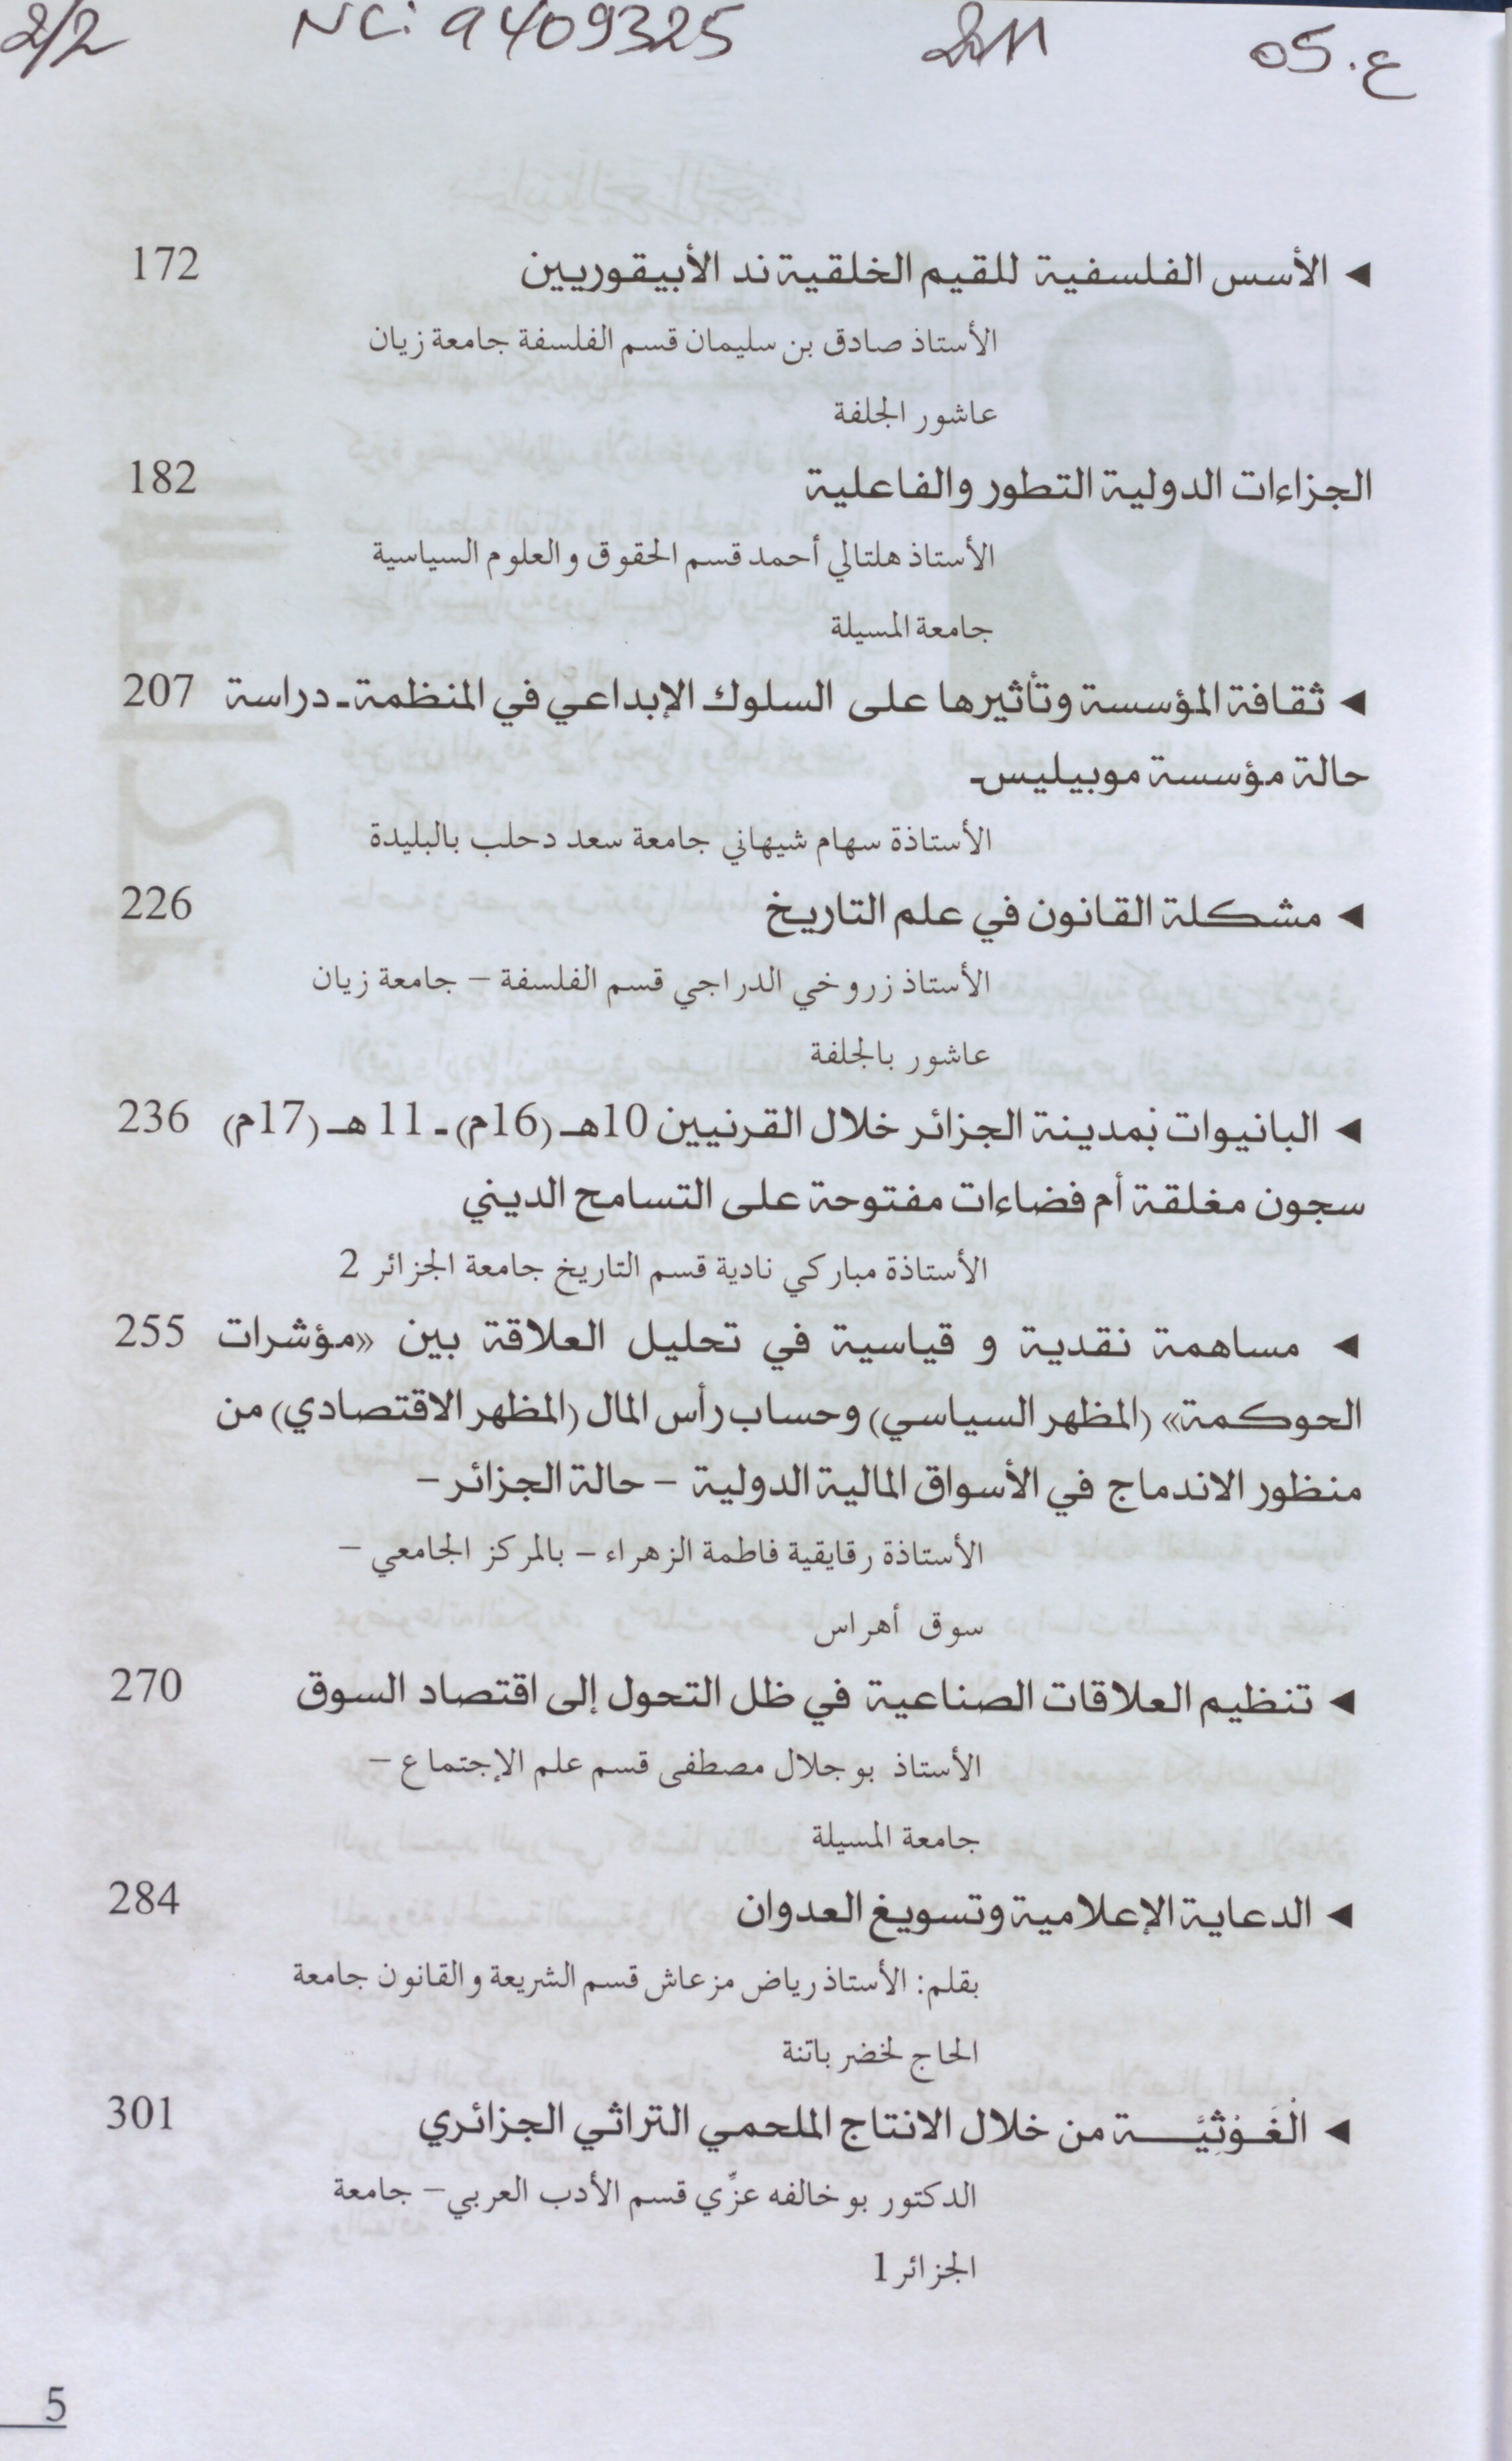 2/2 NC: 9409325 2011 ع. 05
◄ الأسس الفلسفية للقيم الخلقية ند الأبيقوريين 172
الأستاذ صادق بن سليمان قسم الفلسفة جامعة زيان
عاشور الجلفة
الجزاءات الدولية التطور والفاعلية 182
الأستاذ هلتالي أحمد قسم الحقوق و العلوم السياسية
جامعة المسيلة
◄ ثقافة المؤسسة وتأثيرها على السلوك الإبداعي في المنظمة ـ دراسة 207
حالة مؤسسة موبيليس-
الأستاذة سهام شيهاني جامعة سعد دحلب بالبليدة
◄ مشكلة القانون في علم التاريخ 226
الأستاذ زروخي الدراجي قسم الفلسفة – جامعة زيان
عاشور بالجلفة
◄ البانيوات بمدينة الجزائر خلال القرنيين 10هـ (16م) ـ 11 هـ (17م) 236
سجون مغلقة أم فضاءات مفتوحة على التسامح الديني
الأستاذة مباركي نادية قسم التاريخ جامعة الجزائر 2
◄ مساهمة نقدية و قياسية في تحليل العلاقة بين «مؤشرات 255
الحوكمة» (المظهر السياسي) وحساب رأس المال (المظهر الاقتصادي) من
منظور الاندماج في الأسواق المالية الدولية – حالة الجزائر –
الأستاذة رقايقية فاطمة الزهراء – بالمركز الجامعي –
سوق أهراس
◄ تنظيم العلاقات الصناعية في ظل التحول إلى اقتصاد السوق 270
الأستاذ بوجلال مصطفى قسم علم الإجتماع –
جامعة المسيلة
◄ الدعاية الإعلامية وتسويغ العدوان 284
بقلم: الأستاذ رياض مزعاش قسم الشريعة و القانون جامعة
الحاج لخضر باتنة
◄ الْغَـوْثِيَّـــة من خلال الانتاج الملحمي التراثي الجزائري 301
الدكتور بوخالفه عزّي قسم الأدب العربي – جامعة
الجزائر 1
5